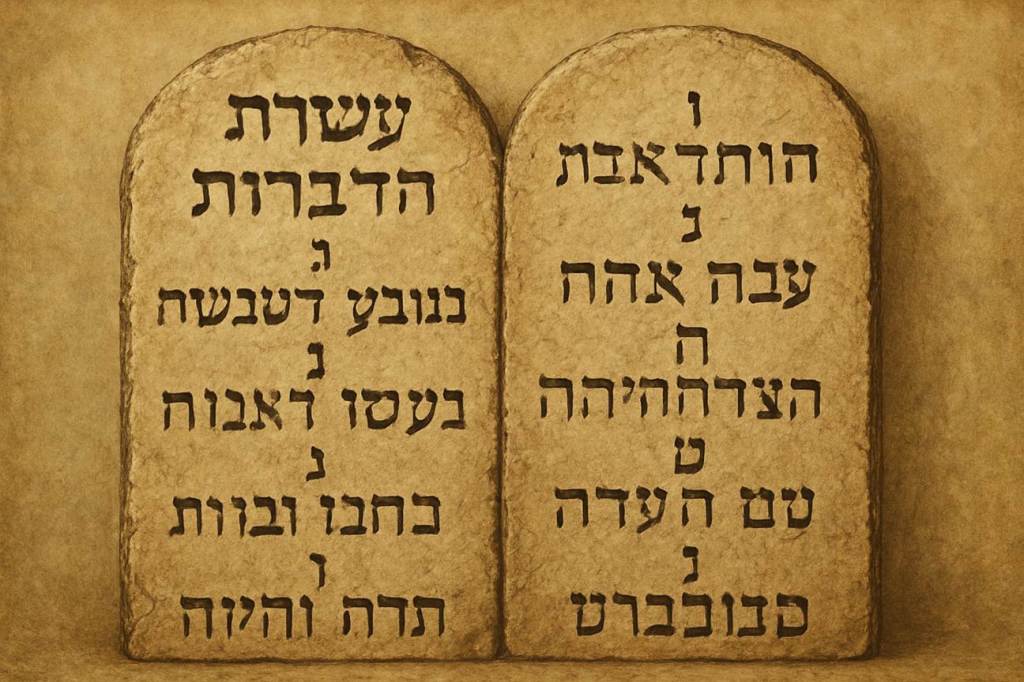 עשרת
הדברות
ג
בנובע דטבשת
נ
בעטו דאבוה
נ
בחבו ובזות
ו
תדה והיזה
ו
הותדאבת
נ
עבה אהת
ה
הצדההיהה
ט
טם העדה
נ
סבובברט